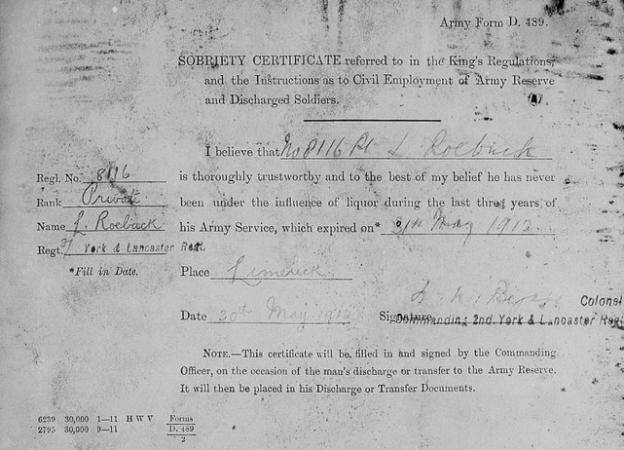 Army Form D. 489.
SOBRIETY CERTIFICATE referred to in the King's Regulations,
and the Instructions as to Civil Employment of Army Reserve
and Discharged Soldiers.
I believe that No 8116 Pt Roebuck
is thoroughly trustworthy and to the best of my belief he has never
been under the influence of liquor during the last three years of
his Army Service, which expired on* May 1912.
Regl. No. 8116
Rank Private
Name J. Roebuck
Regt. 2/ York & Lancaster Regt.
*Fill in Date.
Place Limerick
Date 30th May 1912
Signature
Colonel
Commanding 2nd. York & Lancaster Regt
NOTE.—This certificate will be filled in and signed by the Commanding
Officer, on the occasion of the man's discharge or transfer to the Army Reserve.
It will then be placed in his Discharge or Transfer Documents.
6239 30,000 1—11 H W V
2795 30,000 9—11
Forms
D. 489
2